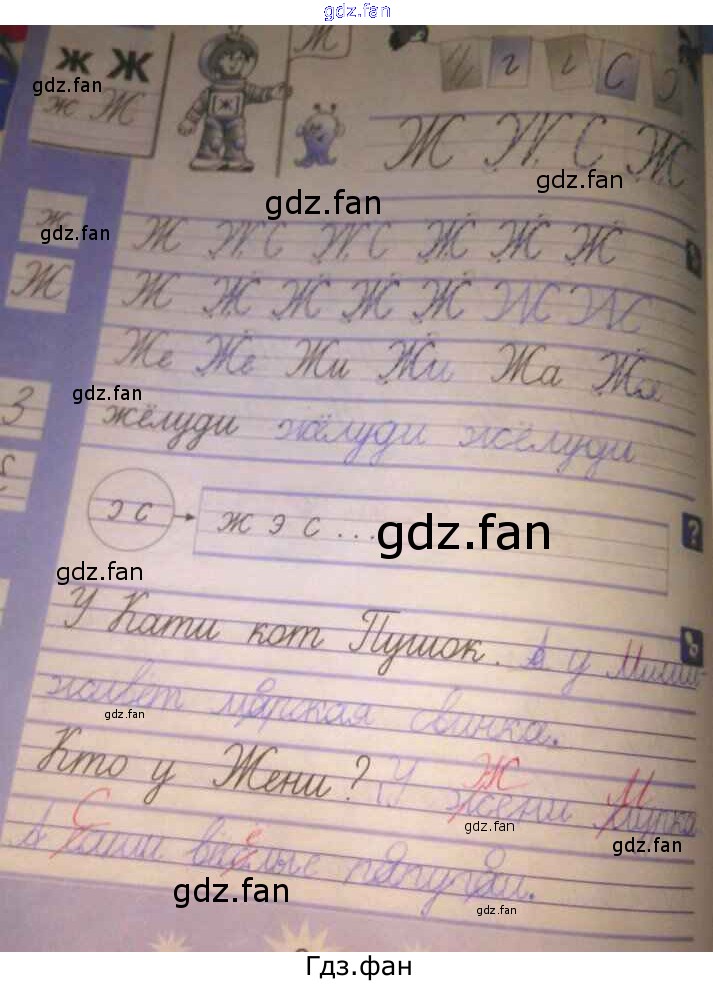 gdz.fan
ж Ж
gdz.fan
ж Ж
Ж
Ж
Ч г С
Ж Ж С Ж
gdz.fan
gdz.fan
ж
gdz.fan
Ж Ж С Ж С Ж Ж Ж
Ж
Ж Ж Ж Ж Ж Ж С Ж С
Же Же Жи Жи Жа Жа
gdz.fan
З
жёлуди жёлуди жёлуди
э с
ж э с ...
gdz.fan
?
gdz.fan
У Кати кот Пушок. А у Миши
живёт морская свинка.
gdz.fan
Кто у Жени? У Жени Мурка.
gdz.fan
gdz.fan
А Саши весёлые попугаи.
gdz.fan
gdz.fan
Гдз.фан